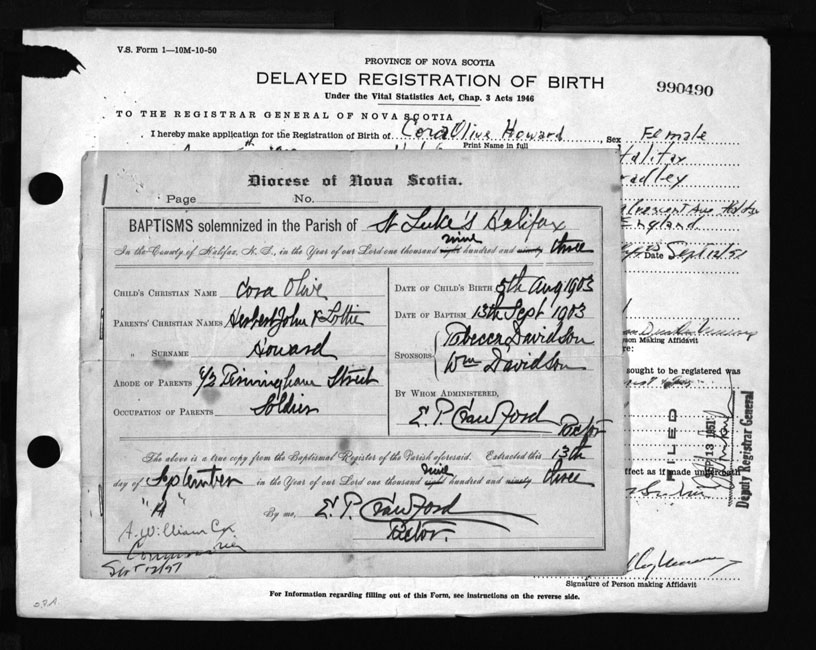 V.S. Form 1—10M-10-50
PROVINCE OF NOVA SCOTIA
DELAYED REGISTRATION OF BIRTH
990490
Under the Vital Statistics Act, Chap. 3 Acts 1946
TO THE REGISTRAR GENERAL OF NOVA SCOTIA
I hereby make application for the Registration of Birth of Cora Olive Howard, Sex Female
Print Name in full
Halifax
England
Date Sept 12/51
on Making Affidavit
re:
sought to be registered was
FILED
SEP 13 1951
Deputy Registrar General
ffect as if made under oath
Diocese of Nova Scotia.
Page No.
BAPTISMS solemnized in the Parish of St Luke's Halifax
In the County of Halifax, N. S., in the Year of our Lord one thousand eight nine hundred and ninety three
CHILD'S CHRISTIAN NAME Cora Olive
PARENTS' CHRISTIAN NAMES Herbert John & Lottie
" SURNAME Howard
ABODE OF PARENTS Street
OCCUPATION OF PARENTS Soldier
DATE OF CHILD'S BIRTH 5th Aug 1903
DATE OF BAPTISM 13th Sept 1903
SPONSORS Rebecca Davidson
Wm Davidson
BY WHOM ADMINISTERED,
E. P. Crawford
Rector
The above is a true copy from the Baptismal Register of the Parish aforesaid. Extracted this 13th
day of September in the Year of our Lord one thousand eight nine hundred and ninety three
By me, E. P. Crawford
Rector.
A. William Cox
Sept 12/51
Signature of Person making Affidavit
For Information regarding filling out of this Form, see instructions on the reverse side.